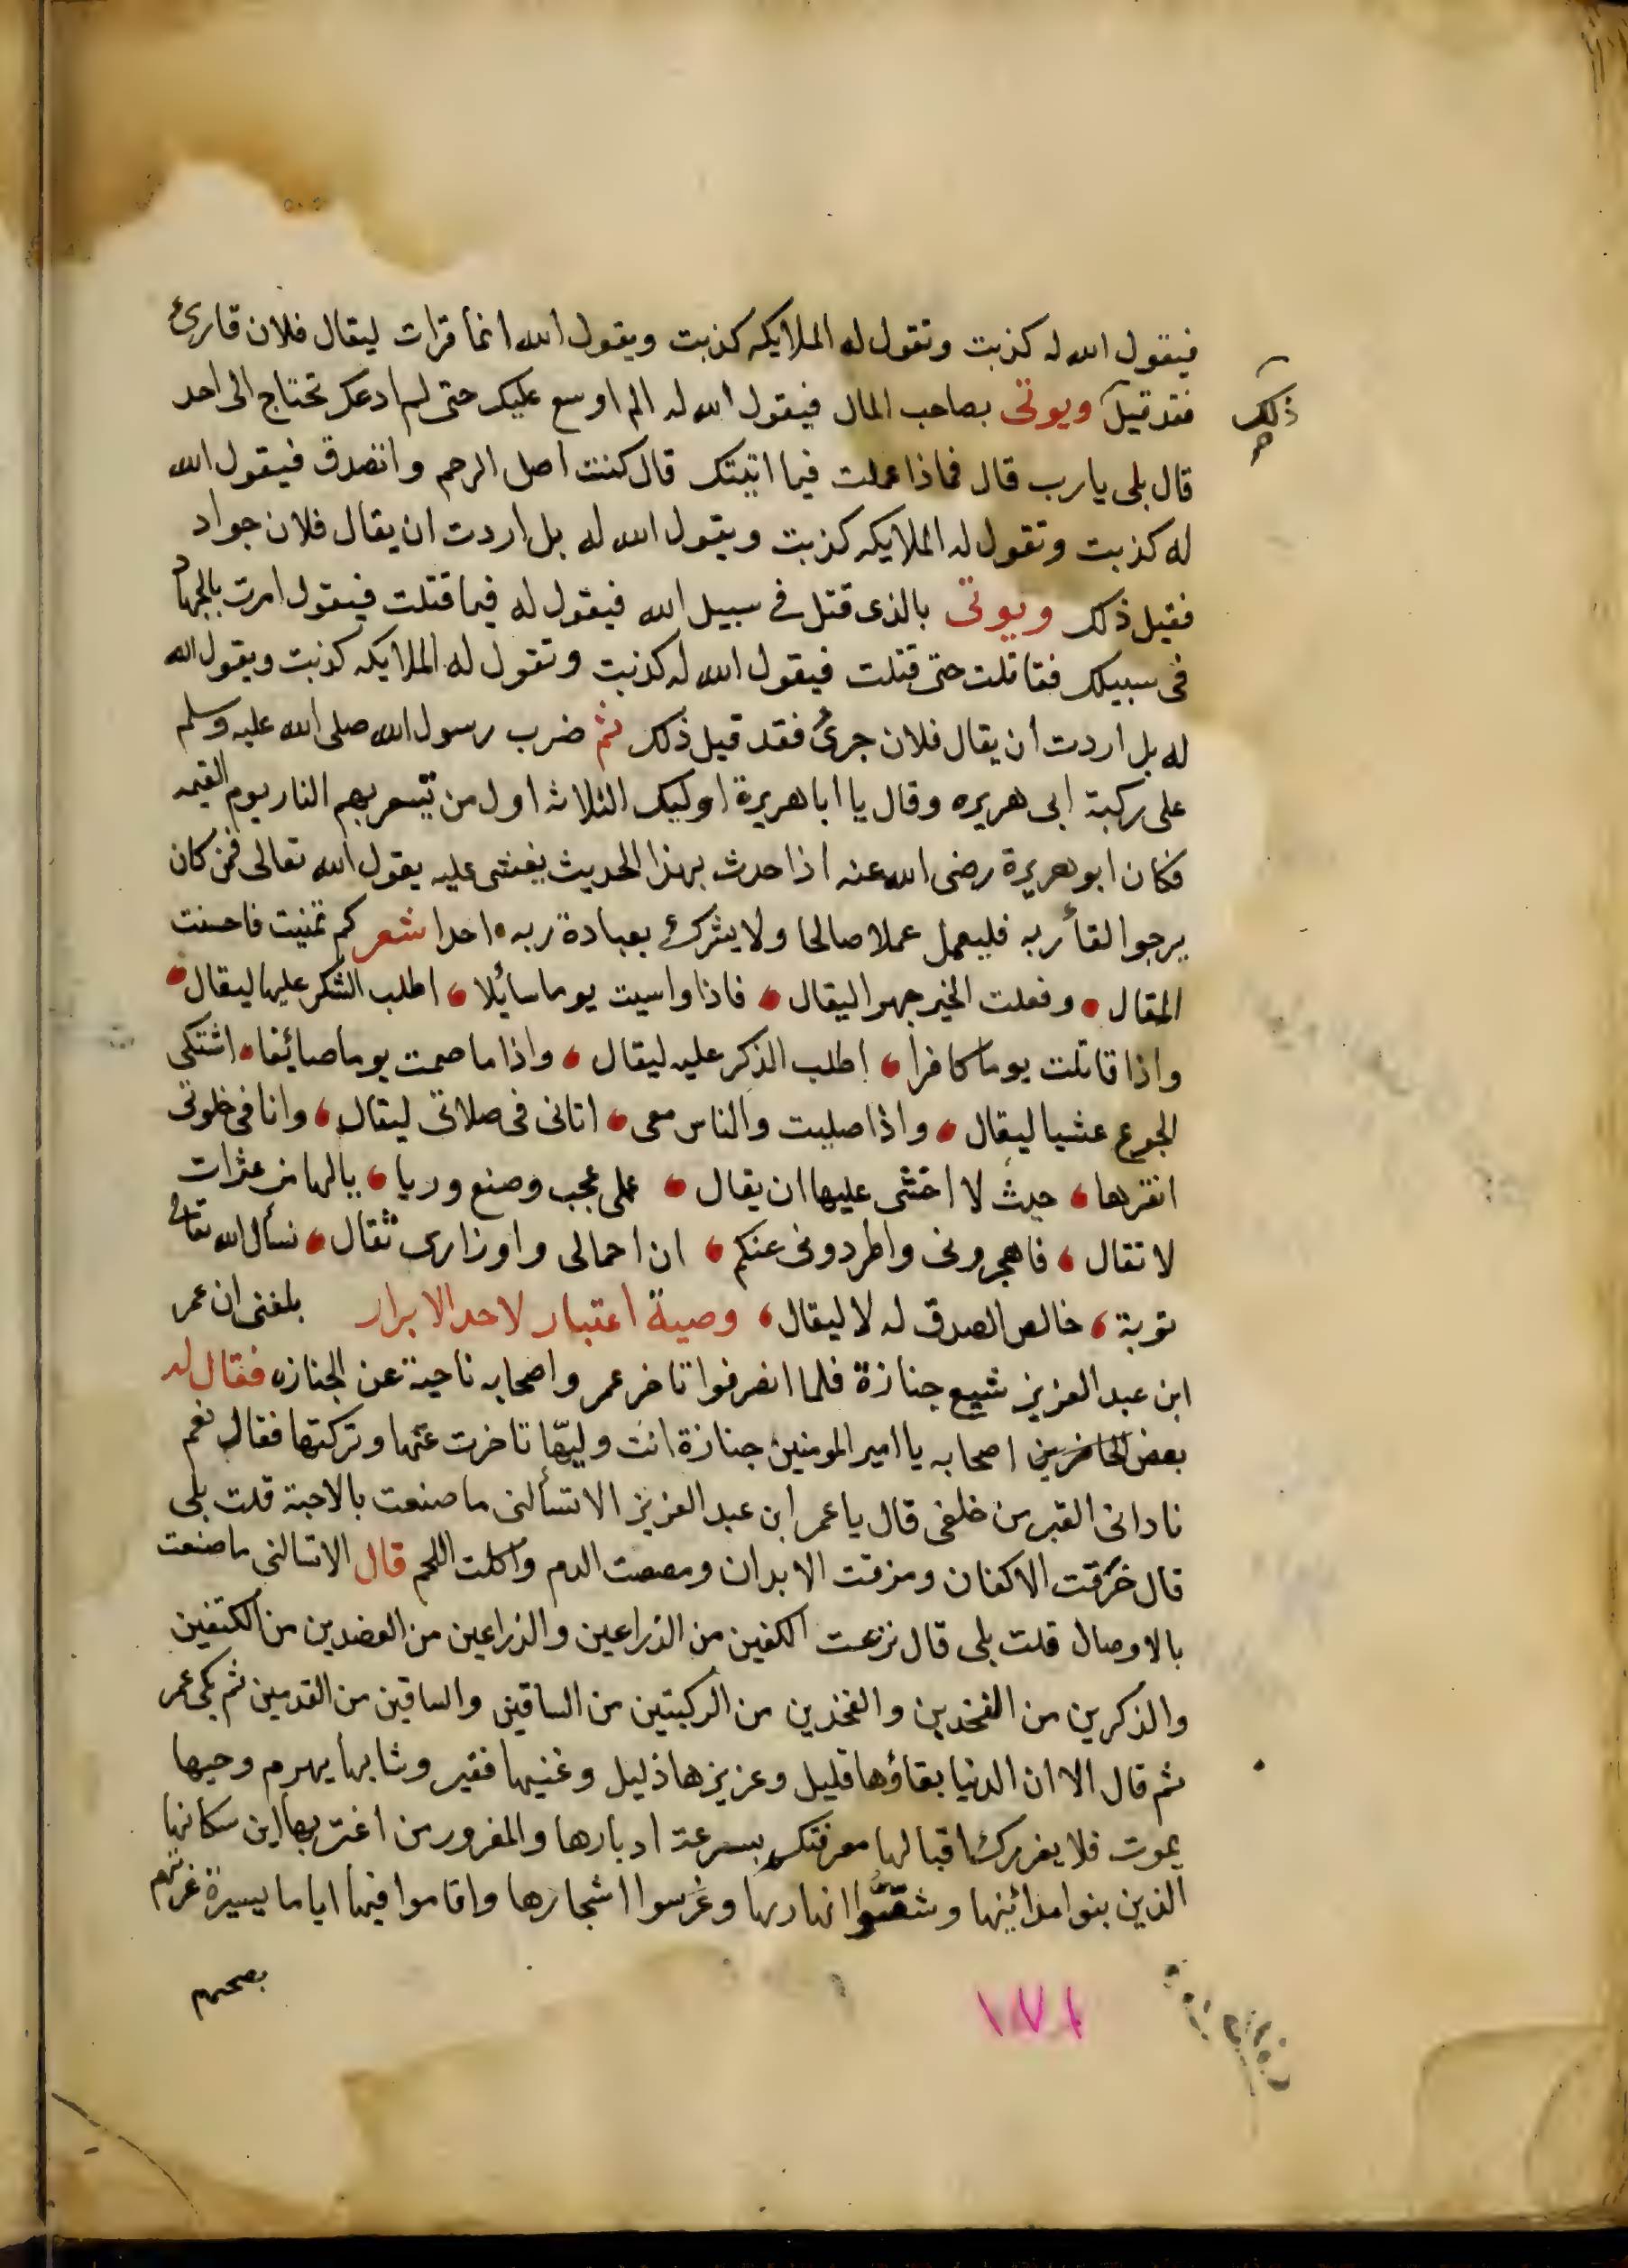 فيقول الله له كذبت وتقول له الملايكه كذبت ويقول الله انما قرات ليقال فلان قارئ
فقد قيل ويوتى بصاحب المال فيقول الله له الم اوسع عليك حتى لم ادعك تحتاج الى احد
ذلك
صح
قال بلى يا رب قال فماذا عملت فيما اتيتك قال كنت اصل الرحم واتصدق فيقول الله
له كذبت وتقول له الملايكه كذبت ويقول الله له بل اردت ان يقال فلان جواد
فقيل ذلك ويوتى بالذى قتل فى سبيل الله فيقول له فيما قتلت فيقول امرت بالجهاد
فى سبيلك فقاتلت حتى قتلت فيقول الله له كذبت وتقول له الملايكه كذبت ويقول الله
له بل اردت ان يقال فلان جرئ فقد قيل ذلك ثم ضرب رسول الله صلى الله عليه وسلم
على ركبة ابى هريره وقال يا ابا هريرة اوليك الثلاثه اول من تسعر بهم النار يوم القيمه
فكان ابو هريرة رضى الله عنه اذا حدث بهذا الحديث يغشى عليه يقول الله تعالى فمن كان
يرجوا لقأ ربه فليعمل عملا صالحا ولا يشرك بعبادة ربه احدا شعر كم تمنيت فاحسنت
المقال وفعلت الخير جهرا ليقال فاذا واسيت يوما سائلا اطلب الشكر عليها ليقال
واذا قاتلت يوما كافرا اطلب الذكر عليه ليقال واذا ما صمت يوما صائفا اشتكى
الجوع عشيا ليقال واذا صليت والناس معى اتانى فى صلاتى ليقال وانا فى خلوتى
انقرها حيث لا اخشى عليها ان يقال على عجب وصنع وريا يالها من عثرات
لا تقال فاهجرونى واطردونى عنكم ان احمالى واوزارى ثقال نسأل الله تعالى
توبة خالص الصدق له لا ليقال وصية اعتبار لاحد الابرار بلغنى ان عمر
ابن عبد العزيز شيع جنازة فلما انصرفوا تاخر عمر واصحابه ناحية عن الجنازه فقال له
بعض الحاضرين اصحابه يا امير المومنين جنازة انت وليها تاخرت عنها وتركتها فقال نعم
نادانى القبر من خلفى قال يا عمر ابن عبد العزيز الا تسألنى ما صنعت بالاحبة قلت بلى
قال خرقت الاكفان ومزقت الابدان ومصصت الدم واكلت اللحم قال الا تسالنى ما صنعت
بالاوصال قلت بلى قال نزعت الكفين من الذراعين والذراعين من العضدين من الكتفين
والذكرين من الفخدين والفخذين من الركبتين من الساقين والساقين من القدمين ثم بكى عمر
ثم قال الا ان الدنيا بقاؤها قليل وعزيزها ذليل وغنيها فقير وشابها يهرم وحيها
يموت فلا يغررك اقبالها معرفتكم بسرعة ادبارها والمغرور من اغتر بها اين سكانها
الذين بنوا مدائينها وشقوا انهارها وغرسوا اشجارها واقاموا فيها اياما يسيرة غرتهم
بصحتهم
١٧١